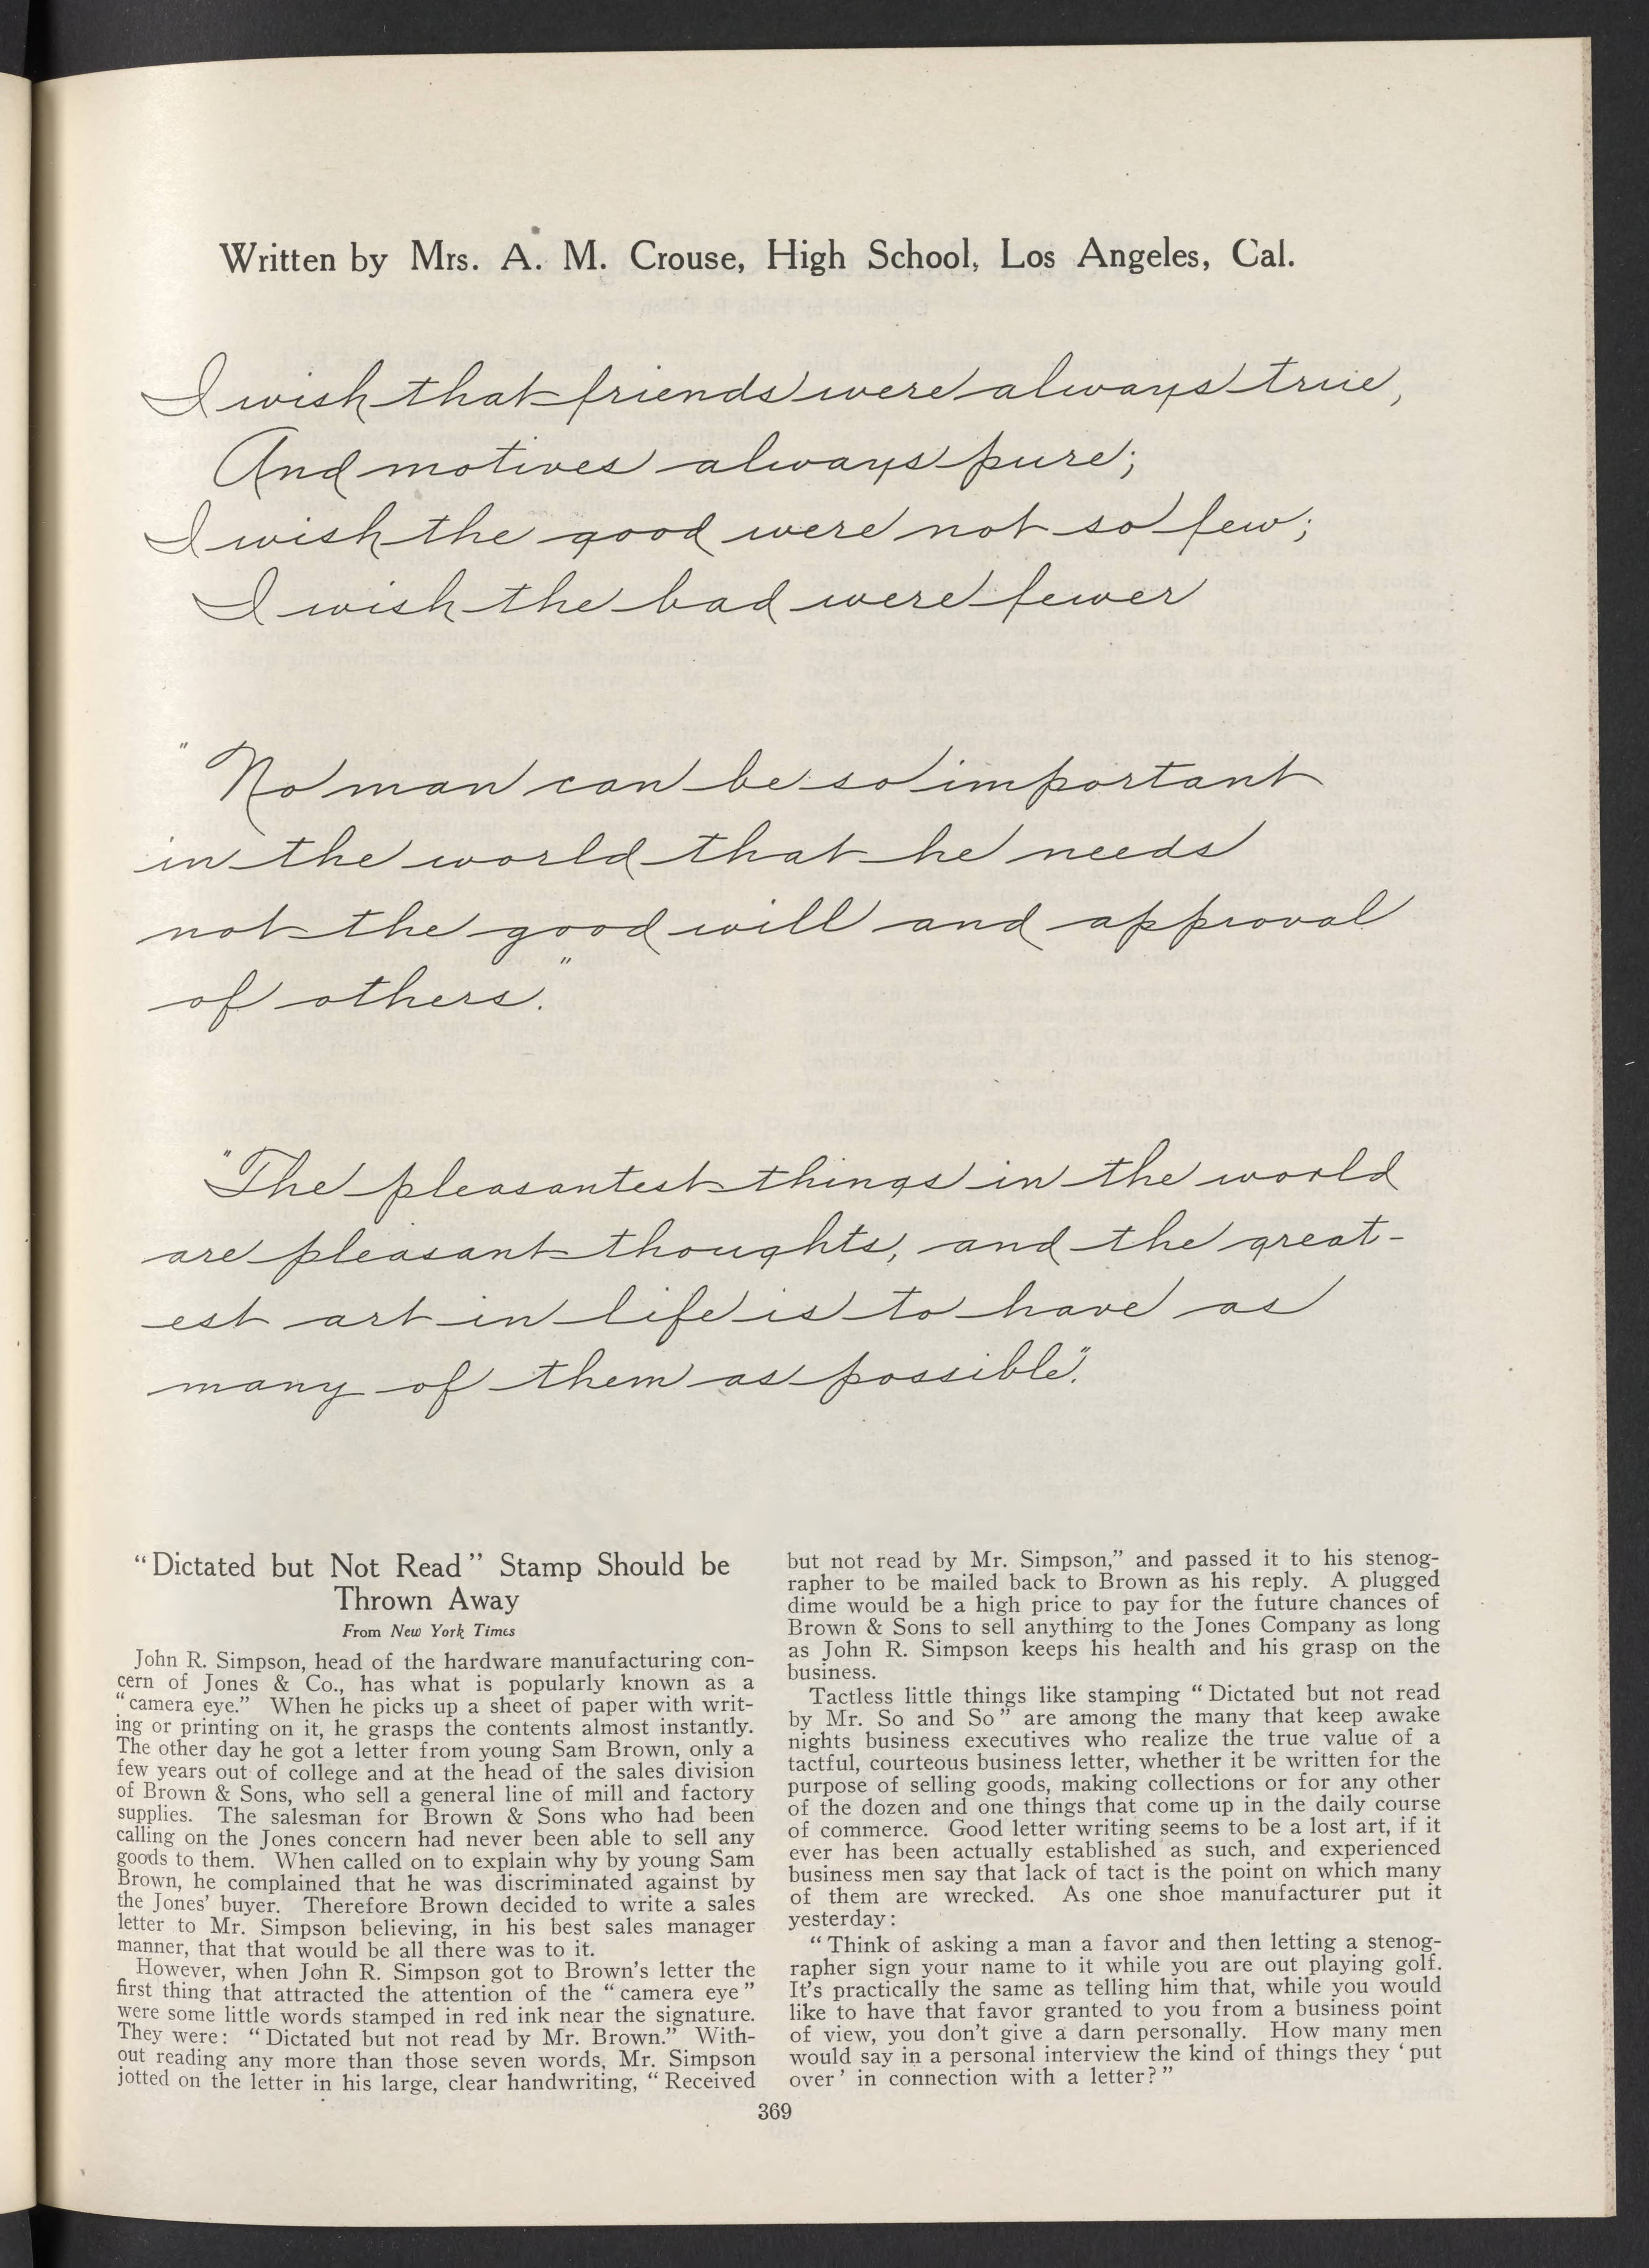 Written by Mrs. A. M. Crouse, High School, Los Angeles, Cal.
I wish that friends were always true,
And motives always pure;
I wish the good were not so few;
I wish the bad were fewer
"No man can be so important
in the world that he needs
not the good will and approval
of others."
"The pleasantest things in the world
are pleasant thoughts, and the great-
est art in life is to have as
many of them as possible."
"Dictated but Not Read" Stamp Should be
Thrown Away
From New York Times
John R. Simpson, head of the hardware manufacturing con-
cern of Jones & Co., has what is popularly known as a
"camera eye." When he picks up a sheet of paper with writ-
ing or printing on it, he grasps the contents almost instantly.
The other day he got a letter from young Sam Brown, only a
few years out of college and at the head of the sales division
of Brown & Sons, who sell a general line of mill and factory
supplies. The salesman for Brown & Sons who had been
calling on the Jones concern had never been able to sell any
goods to them. When called on to explain why by young Sam
Brown, he complained that he was discriminated against by
the Jones' buyer. Therefore Brown decided to write a sales
letter to Mr. Simpson believing, in his best sales manager
manner, that that would be all there was to it.
However, when John R. Simpson got to Brown's letter the
first thing that attracted the attention of the "camera eye"
were some little words stamped in red ink near the signature.
They were: "Dictated but not read by Mr. Brown." With-
out reading any more than those seven words, Mr. Simpson
jotted on the letter in his large, clear handwriting, "Received
but not read by Mr. Simpson," and passed it to his stenog-
rapher to be mailed back to Brown as his reply. A plugged
dime would be a high price to pay for the future chances of
Brown & Sons to sell anything to the Jones Company as long
as John R. Simpson keeps his health and his grasp on the
business.
Tactless little things like stamping "Dictated but not read
by Mr. So and So" are among the many that keep awake
nights business executives who realize the true value of a
tactful, courteous business letter, whether it be written for the
purpose of selling goods, making collections or for any other
of the dozen and one things that come up in the daily course
of commerce. Good letter writing seems to be a lost art, if it
ever has been actually established as such, and experienced
business men say that lack of tact is the point on which many
of them are wrecked. As one shoe manufacturer put it
yesterday:
"Think of asking a man a favor and then letting a stenog-
rapher sign your name to it while you are out playing golf.
It's practically the same as telling him that, while you would
like to have that favor granted to you from a business point
of view, you don't give a darn personally. How many men
would say in a personal interview the kind of things they 'put
over' in connection with a letter?"
369